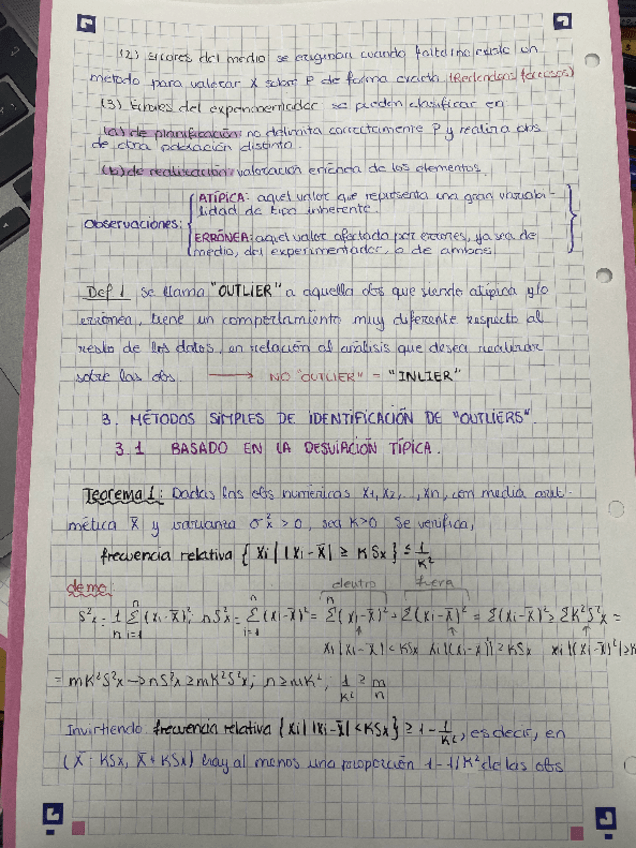 (2) Errores del medio se originan cuando falta/no existe un
método para valorar X sobre P de forma exacta (Redondeos forzosos)
(3) Errores del experimentador se pueden clasificar en
(a) de planificación: no delimita correctamente P y realiza obs
de otra población distinta.
(b) de realización: valoración errónea de los elementos.
Observaciones:
ATÍPICA: aquel valor que representa una gran variabi-
lidad de tipo inherente.
ERRÓNEA: aquel valor afectado por errores, ya sea de
medio, del experimentador, o de ambos
Def 1 se llama "OUTLIER" a aquella obs que siendo atípica y/o
errónea, tiene un comportamiento muy diferente respecto al
resto de los datos, en relación al análisis que desea realizar
sobre las obs. → NO "OUTLIER" = "INLIER"
3. MÉTODOS SIMPLES DE IDENTIFICACIÓN DE "OUTLIERS".
3.1 BASADO EN LA DESVIACIÓN TÍPICA.
Teorema 1: Dadas las obs numéricas x1, x2, ..., xn, con media arit-
mética x̄ y varianza σ²x > 0, sea K>0 Se verifica,
frecuencia relativa { xi | |xi - x̄| ≥ KSx } ≤ 1/K²
demo:
dentro fuera
S²x = 1/n Σ(xi - x̄)²; nS²x = Σ(xi - x̄)² = Σ(xi - x̄)² + Σ(xi - x̄)² ≥ Σ(xi - x̄)² ≥ ΣK²S²x =
xi | |xi - x̄| < KSx xi | |xi - x̄| ≥ KSx
= mK²S²x → nS²x ≥ mK²S²x; n ≥ mK², 1/K² ≥ m/n
Invirtiendo frecuencia relativa { xi | |xi - x̄| < KSx } ≥ 1 - 1/K², es decir, en
(x̄ - KSx, x̄ + KSx) hay al menos una proporción 1 - 1/K² de las obs